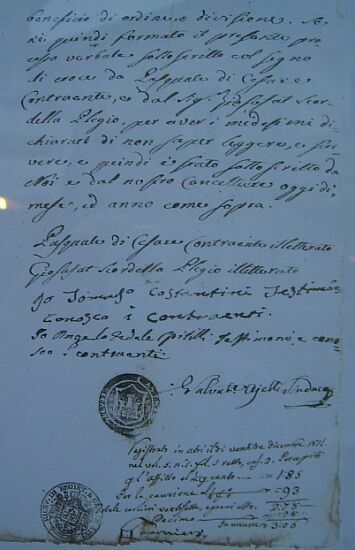 beneficio di ordine, e divisione. Se
n'è quindi formato il presente pro
cesso verbale sottoscritto col segno
di croce da Pasquale di Cesare
Contraente, e dal Sig.r Giosafat Scor
della Plegio, per aver i medesimi di
chiarato di non saper leggere, e scri
vere, e quindi è stato sottoscritto da
Noi e dal nostro Cancelliere oggi dì
mese, ed anno come sopra.
Pasquale di Cesare Contraente illetterato
Giosafat Scordella Plegio illetterato
Io Tomaso Costantini Testimone
conosco i contraenti.
Io Angelo Fedele testimonio e cono
sco i contraenti
Sindaco
Registrato in atri li dì ventitre dicembre
nel vol. 5. fol. 5. retto, cas. 2. Esatti
p. l'affitto
1.85
Per la cauzione
93
2.78
Decimo
3.06